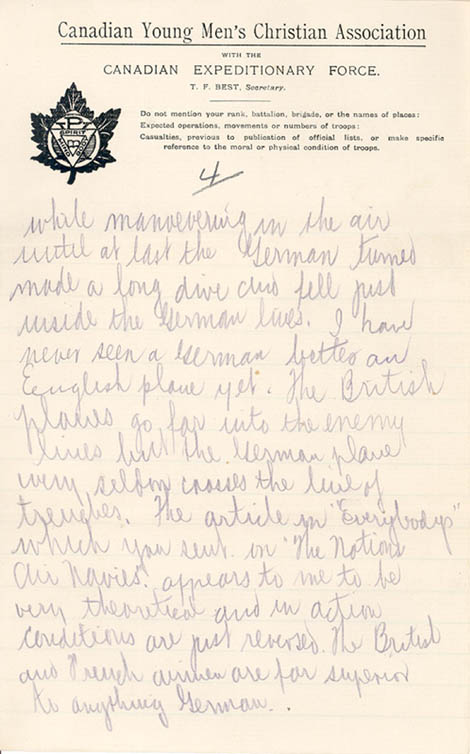 Canadian Young Men's Christian Association
WITH THE
CANADIAN EXPEDITIONARY FORCE.
T. F. BEST, Secretary.
Do not mention your rank, battalion, brigade, or the names of places:
Expected operations, movements or numbers of troops:
Casualties, previous to publication of official lists, or make specific
reference to the moral or physical condition of troops.
SPIRIT
4
while manoevering in the air
until at last the German turned
made a long dive and fell just
inside the German lines. I have
never seen a German better an
English plane yet. The British
planes go far into the enemy
lines but the German plane
very seldom crosses the line of
trenches. The article in "Everybodys"
which you sent on "The Nations
Air Navies" appears to me to be
very theoretical and in action
conditions are just reversed. The British
and French airmen are far superior
to anything German.